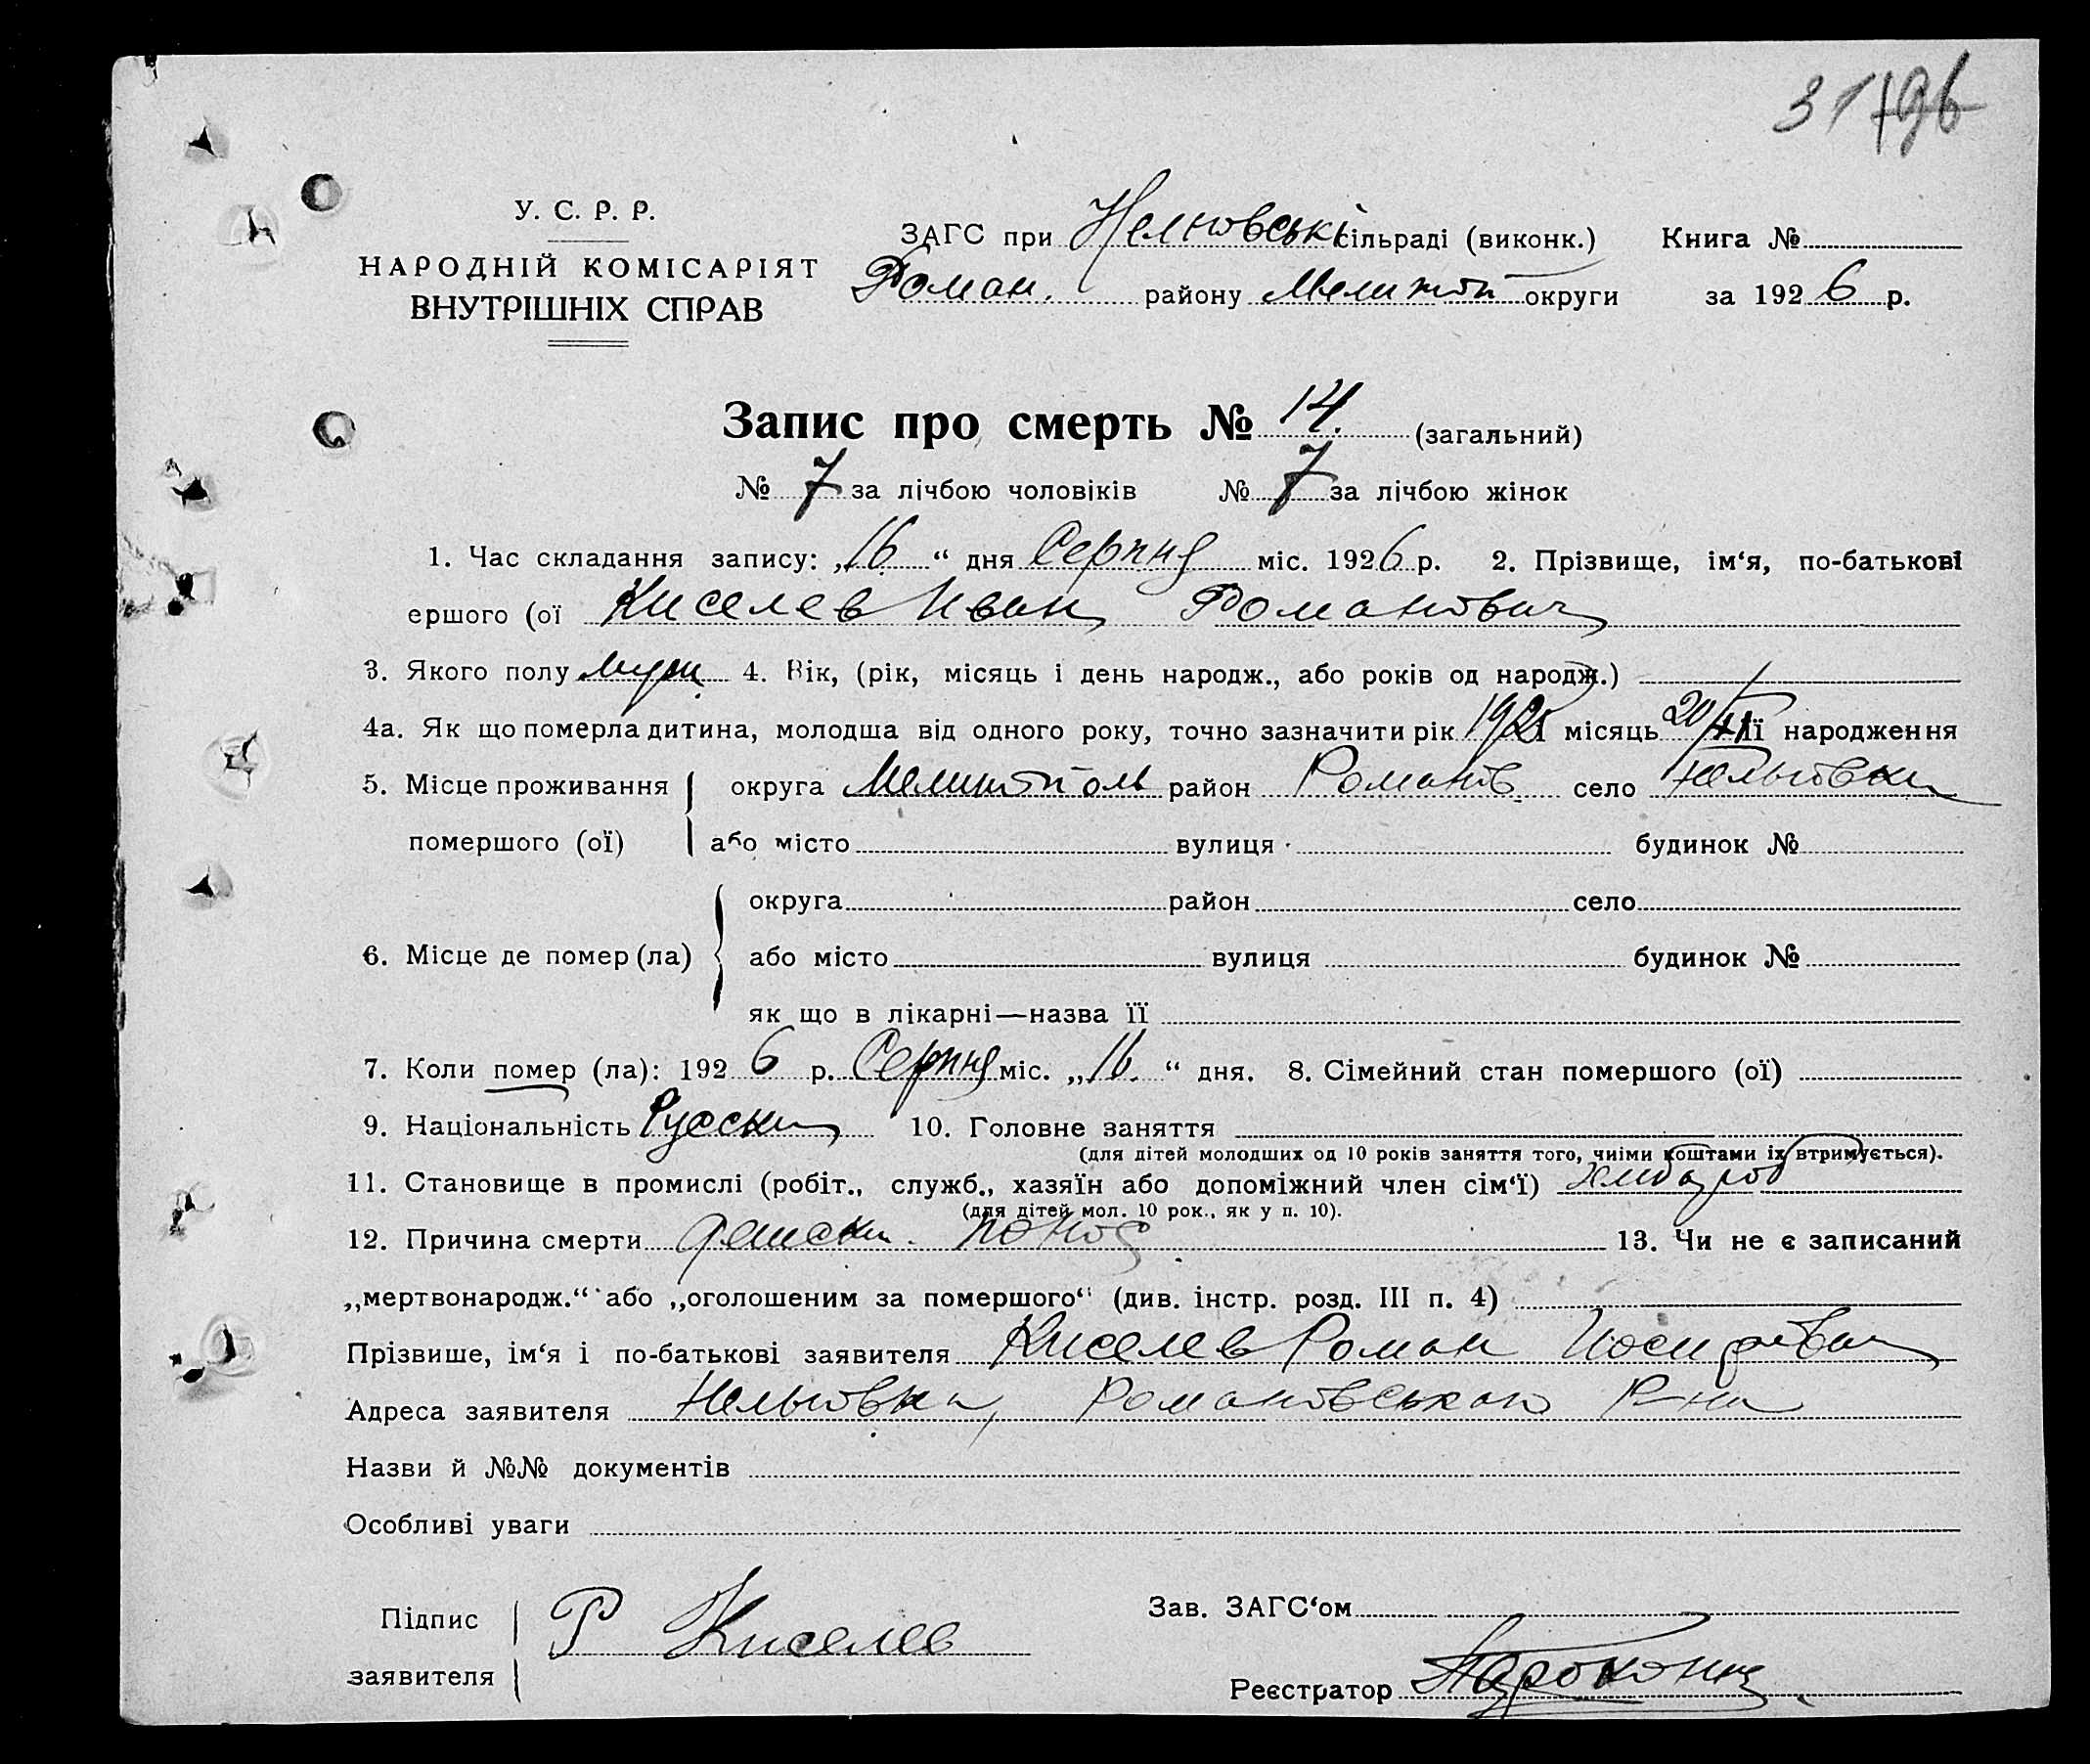 31 196
У. С. Р. Р.
НАРОДНІЙ КОМІСАРІЯТ
ВНУТРІШНІХ СПРАВ
ЗАГС при сільраді (виконк.) Книга №
Роман. району Мелитоп округи за 1926 р.
Запис про смерть № 14. (загальний)
№ 7 за лічбою чоловіків № 7 за лічбою жінок
1. Час складання запису: „16“ дня Серпня міс. 1926 р. 2. Прізвище, ім‘я, по-батькові
ершого (ої Киселев Иван Романович
3. Якого полу муж. 4. Вік, (рік, місяць і день народж., або років од народж.)
4а. Як що померла дитина, молодша від одного року, точно зазначити рік місяць її народження
5. Місце проживання округа Мелитополь район Романів. село
помершого (ої) або місто вулиця будинок №
округа район село
6. Місце де помер (ла) або місто вулиця будинок №
як що в лікарні—назва її
7. Коли помер (ла): 1926 р. Серпня міс. „16.“ дня. 8. Сімейний стан помершого (ої)
9. Національність Русски 10. Головне заняття
(для дітей молодших од 10 років заняття того, чиїми коштами їх втримується).
11. Становище в промислі (робіт., служб., хазяїн або допоміжний член сім‘ї) хлибороб
(для дітей мол. 10 рок., як у п. 10).
12. Причина смерти понос 13. Чи не є записаний
„мертвонародж.“ або „оголошеним за помершого“ (див. інстр. розд. III п. 4)
Прізвише, ім‘я і по-батькові заявителя Киселев Роман Иосифович
Адреса заявителя Романовського Р-на
Назви й №№ документів
Особливі уваги
Підпис
заявителя
Р Киселев
Зав. ЗАГС‘ом
Реєстратор